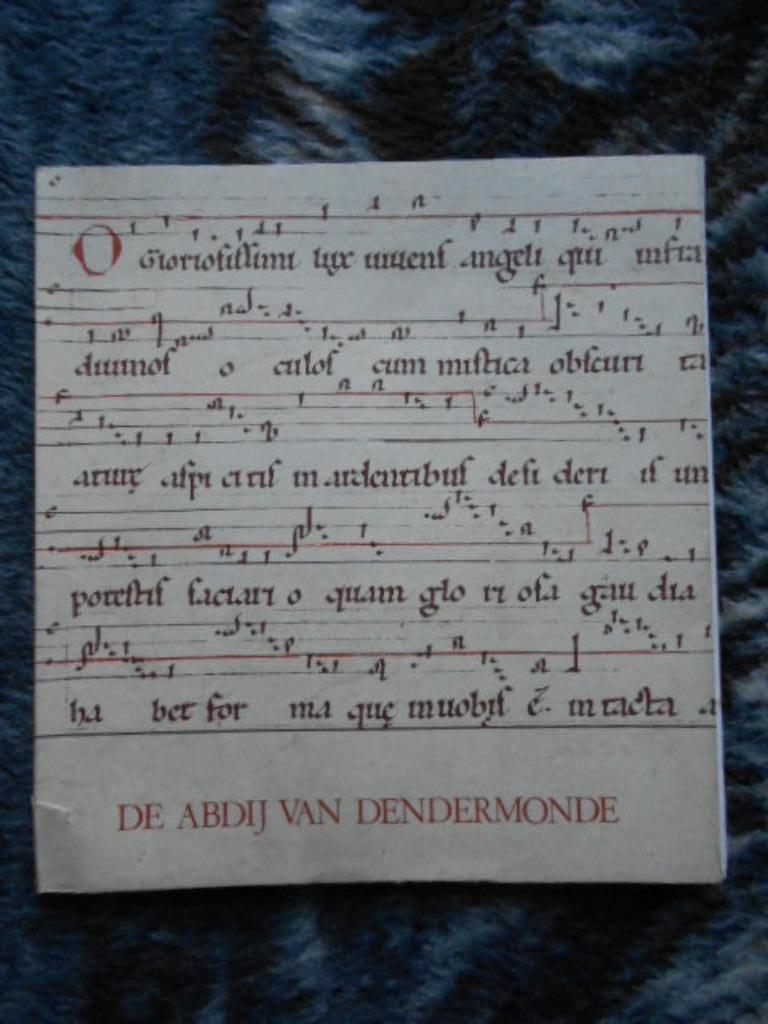 O Gloriosissimi lux uiuens angeli qui infra
diuinos o culos cum mistica obscuri ta
aspi citis in ardentibus desi deri is un
potestis saciari o quam glo ri osa gau dia
ha bet for ma quę in uobis ē. in tacta a
DE ABDIJ VAN DENDERMONDE